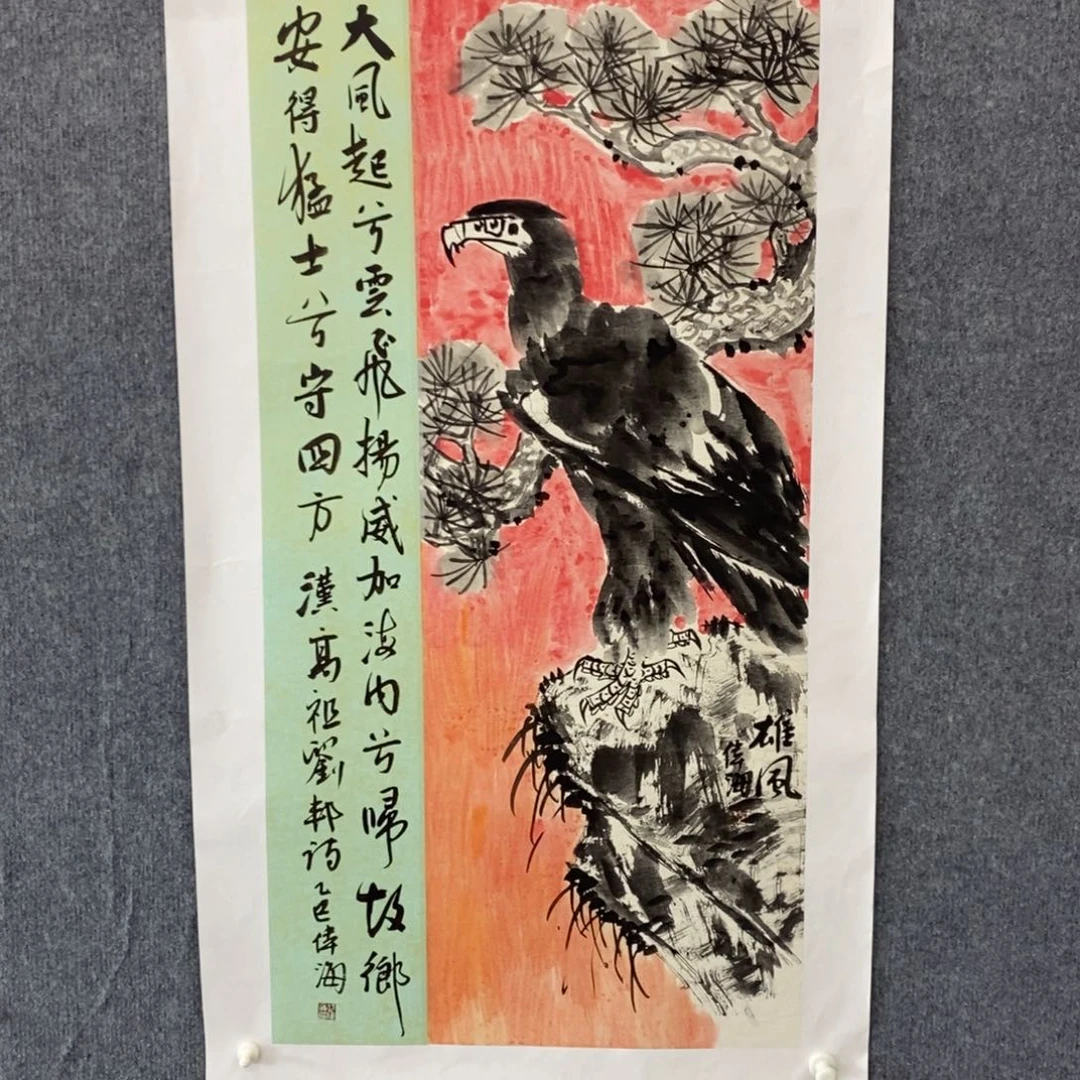 大風起兮雲飛揚威加海内兮歸故鄉
安得猛士兮守四方 漢高祖劉邦詩 乙巳偉海
雄風
偉海